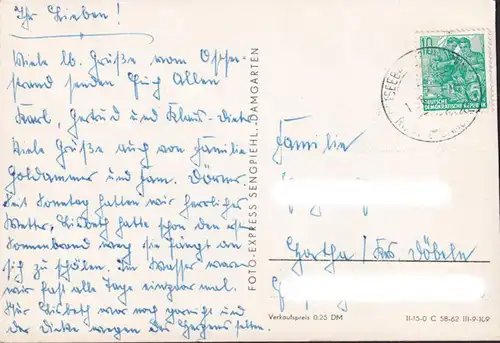 Ihr Lieben!
Viele lb. Grüße vom Ostsee-
strand senden Euch Allen
Karl, Gertrud und Klaus-Dieter
Viele Grüße auch von Familie
Goldammer und Fam. Dörner
Seit Sonntag hatten wir herrliches
Wetter, Lisbeth hatte schon den
Sonnenbrand weg sie fängt an
sich zu schälen. Im Wasser waren
wir fast alle Tage einmal.
Nur Lisbeth war noch garnicht und
der Dicke wegen des selten.
FOTO-EXPRESS SENGPIEHL, DAMGARTEN
10
DEUTSCHE
DEMOKRATISCHE REPUBLIK
Familie
Gartha / Krs Döbeln
Verkaufspreis 0.25 DM
II-15-0 C 58-62 III-9-1L9